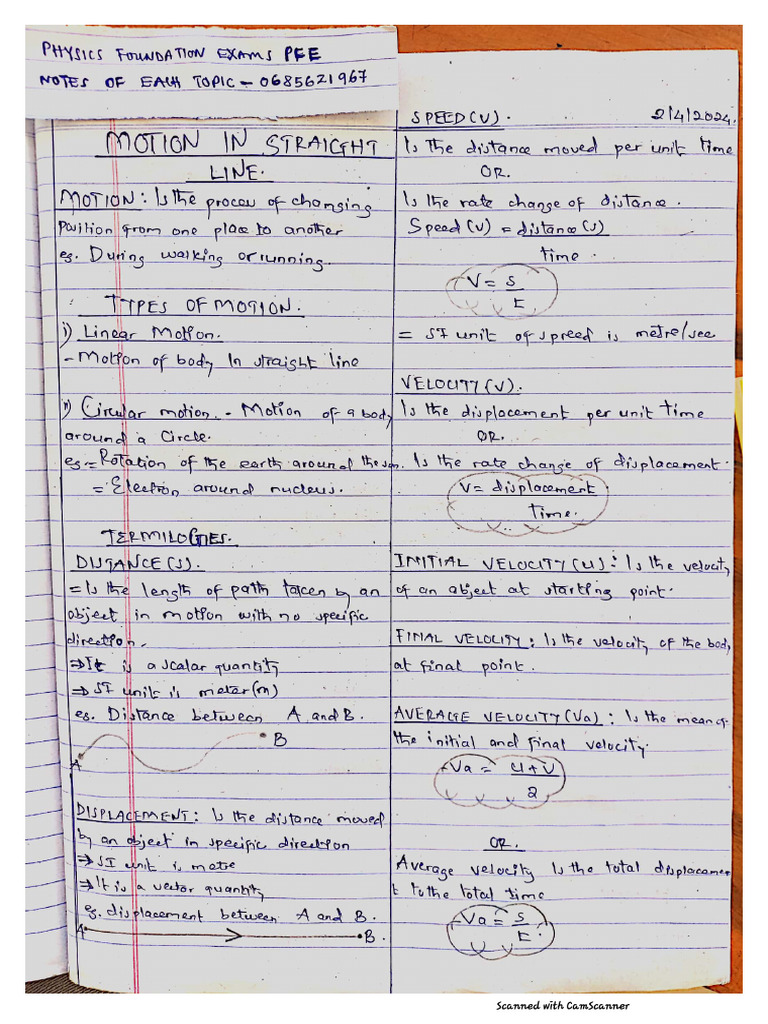 PHYSICS FOUNDATION EXAMS PFE
NOTES OF EACH TOPIC - 0685621967
MOTION IN STRAIGHT
LINE.
MOTION: Is the process of changing
Position from one place to another
eg. During walking or running.
TYPES OF MOTION.
i) Linear Motion.
- Motion of body In straight line
ii) Circular motion. - Motion of a body
around a Circle.
eg = Rotation of the earth around the sun.
= Electron around nucleus.
TERMILOGIES.
DISTANCE(S).
= Is the length of path taken by an
object in motion with no specific
direction.
⇒ It is a scalar quantity
⇒ SI unit is meter(m)
eg. Distance between A and B.
A B
DISPLACEMENT: Is the distance moved
by an object in specific direction
⇒ SI unit is metre
⇒ It is a vector quantity
eg. displacement between A and B.
A B.
SPEED(V). 2/4/2024.
Is the distance moved per unit time
OR.
Is the rate change of distance.
Speed(V) = distance(s)
time.
V = S
t
= SI unit of spreed is metre/sec
VELOCITY(V).
Is the displacement per unit time
OR.
Is the rate change of displacement.
V = displacement
time.
INITIAL VELOCITY(U): Is the velocity
of an object at starting point.
FINAL VELOCITY: Is the velocity of the body
at final point.
AVERAGE VELOCITY(Va): Is the mean of
the initial and final velocity.
Va = U+V
2
OR.
Average velocity Is the total displacemen
t to the total time
Va = S
t.
Scanned with CamScanner